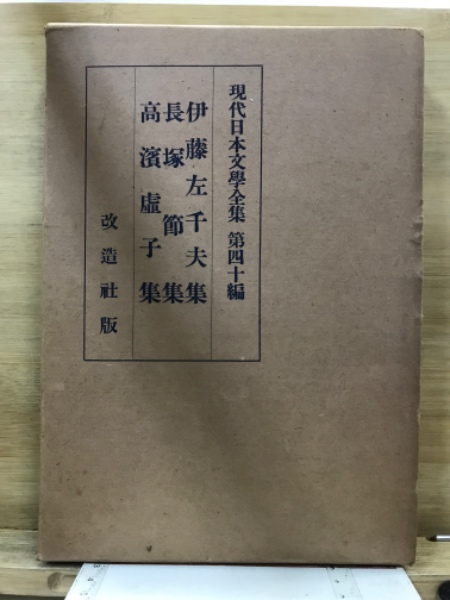 現代日本文學全集 第四十編
伊藤左千夫集
長塚節集
高濱虛子集
改造社版